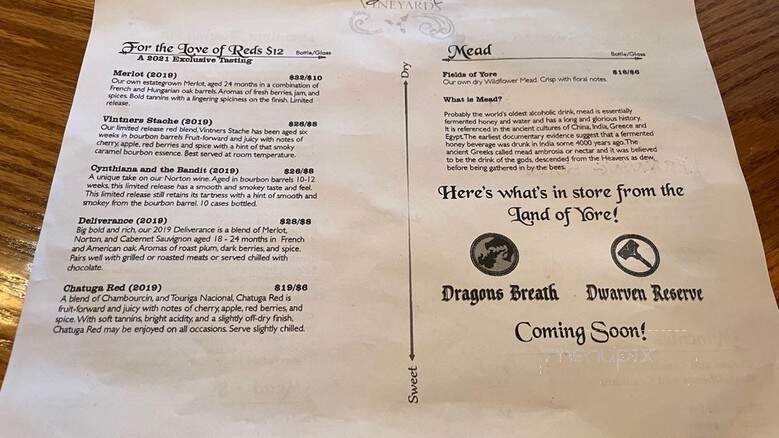 VINEYARDS
For the Love of Reds $12 Bottle/Glass
A 2021 Exclusive Tasting
Merlot (2019) $32/$10
Our own estategrown Merlot, aged 24 months in a combination of
French and Hungarian oak barrels. Aromas of fresh berries, jam, and
spices. Bold tannins with a lingering spiciness on the finish. Limited
release.
Vintners Stache (2019) $26/$8
Our limited release red blend, Vintners Stache has been aged six
weeks in bourbon barrels. Fruit-forward and juicy with notes of
cherry, apple, red berries and spice with a hint of that smoky
caramel bourbon essence. Best served at room temperature.
Cynthiana and the Bandit (2019) $26/$8
A unique take on our Norton wine. Aged in bourbon barrels 10-12
weeks, this limited release has a smooth and smokey taste and feel.
This limited release still retains its tartness with a hint of smooth and
smokey from the bourbon barrel. 10 cases bottled.
Deliverance (2019) $28/$8
Big bold and rich, our 2019 Deliverance is a blend of Merlot,
Norton, and Cabernet Sauvignon aged 18 - 24 months in French
and American oak. Aromas of roast plum, dark berries, and spice.
Pairs well with grilled or roasted meats or served chilled with
chocolate.
Chatuga Red (2019) $19/$6
A blend of Chambourcin, and Touriga Nacional, Chatuga Red is
fruit-forward and juicy with notes of cherry, apple, red berries, and
spice. With soft tannins, bright acidity, and a slightly off-dry finish,
Chatuga Red may be enjoyed on all occasions. Serve slightly chilled.
Dry
Sweet
Mead Bottle/Glass
Fields of Yore $16/$6
Our own dry Wildflower Mead. Crisp with floral notes.
What is Mead?
Probably the world's oldest alcoholic drink, mead is essentially
fermented honey and water and has a long and glorious history.
It is referenced in the ancient cultures of China, India, Greece and
Egypt. The earliest documentary evidence suggest that a fermented
honey beverage was drunk in India some 4000 years ago. The
ancient Greeks called mead ambrosia or nectar and it was believed
to be the drink of the gods, descended from the Heavens as dew,
before being gathered in by the bees.
Here's what's in store from the
Land of Yore!
Dragons Breath Dwarven Reserve
Coming Soon!
menupix